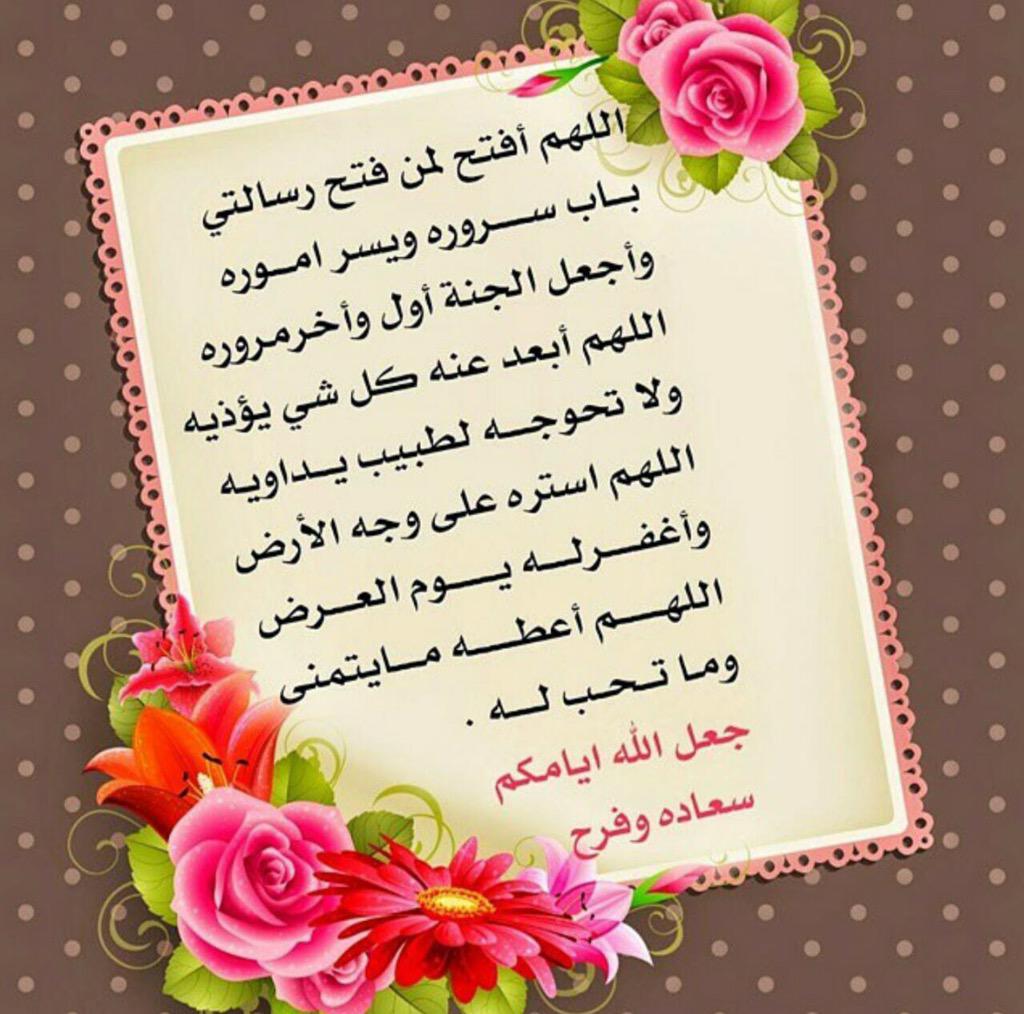 اللهم أفتح لمن فتح رسالتي
بـاب ســـروره ويسر امــوره
وأجعل الجنة أول وأخرمروره
اللهم أبعد عنه كل شي يؤذيه
ولا تحوجــه لطبيب يــداويــه
اللهم استره على وجه الأرض
وأغفــرلــه يــــوم العــرض
اللهــــم أعطــــه مــايتمنى
وما تـحـب لــه .
جعل الله ايامكم
سعاده وفرح